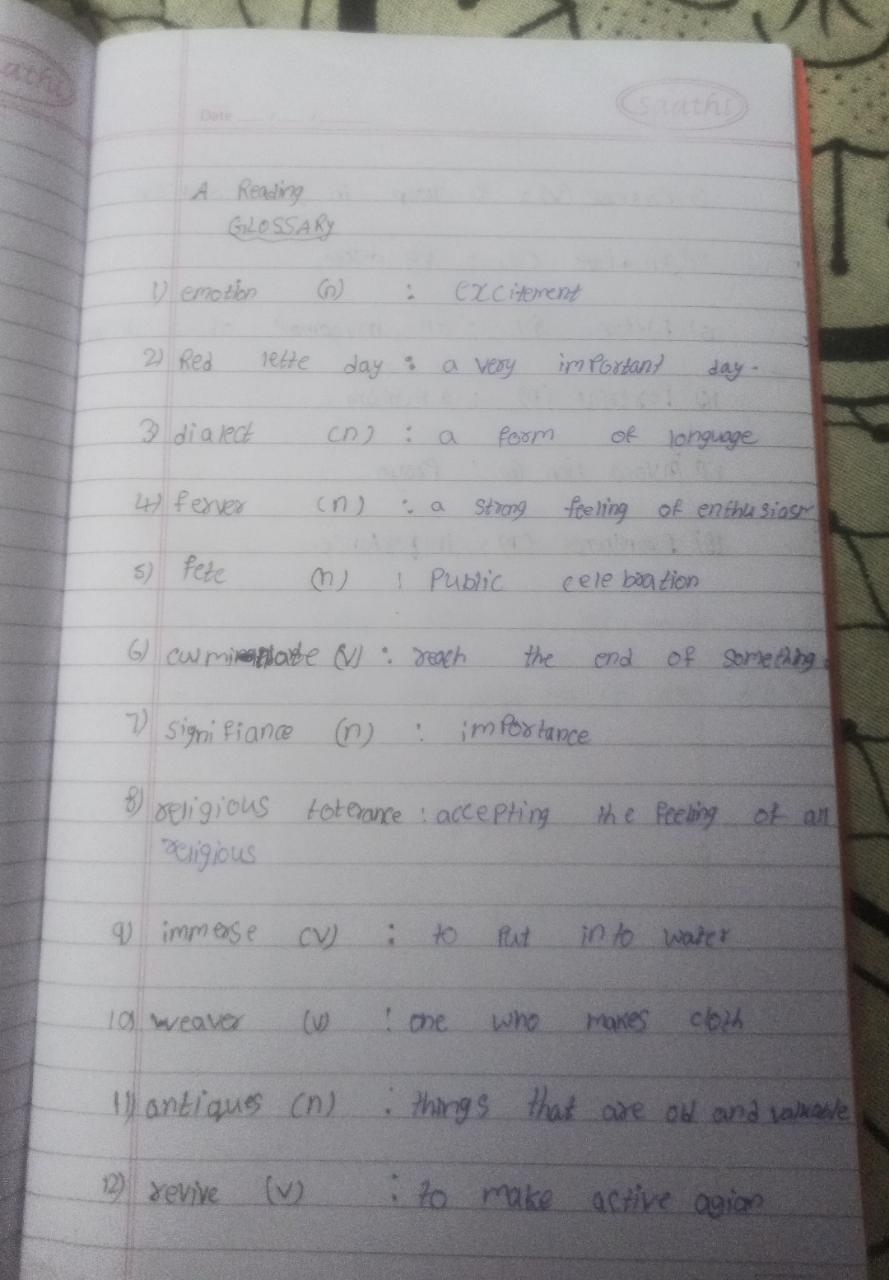 athi
Date
Saathi
A Reading
GLOSSARY
1) emotion (n) : excitement
2) Red lette day : a very important day.
3) dialect (n) : a form of language
4) ferver (n) : a strong feeling of enthusiasm
5) fete (n) : Public celebration
6) (v) : reach the end of something.
7) signifiance (n) : importance
8) religious tolerance : accepting the feeling of all
religious
9) immerse (v) : to put into water
10) weaver (v) : one who makes cloth
11) antiques (n) : things that are old and valuable
12) revive (v) : to make active agian